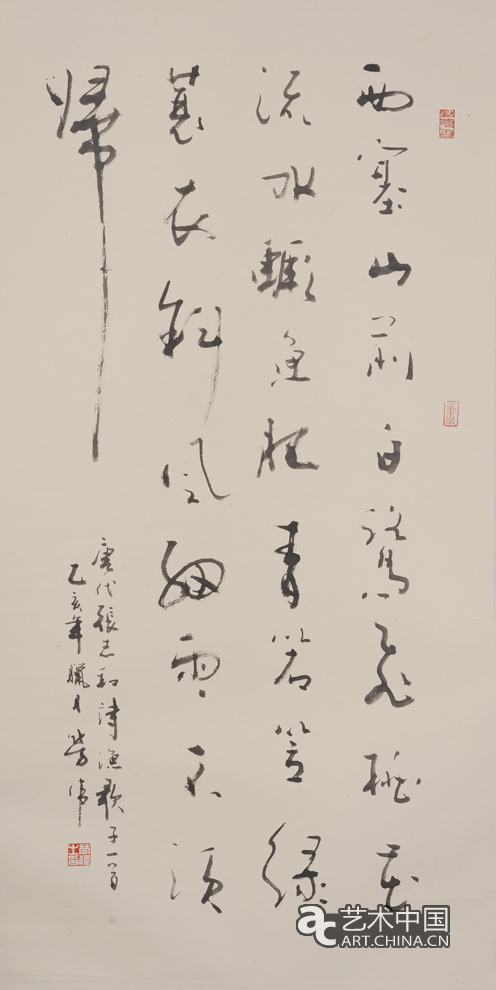 西塞山前白鷺飛桃花
流水鱖魚肥青箬笠綠
蓑衣斜風細雨不須
歸
唐代張志和詩漁歌子一首
乙亥年臘月
ac 艺术中国
ART.CHINA.CN